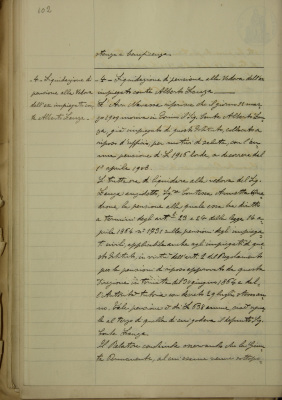 602
stanza e beneficenza.
A - Liquidazione di
pensione alla Vedova
dell'ex impiegato con-
te Alberto Lanza.
A - Liquidazione di pensione alla Vedova dell'ex
impiegato conte Alberto Lanza.
Il riferisce che il giorno 21 mag-
gio 1909 moriva in il Sig. Conte Alberto Lan-
za, già impiegato di questo Istituto, collocato a
riposo d'ufficio, per motivi di salute, con l'an-
nua pensione di L. 1905 lorde, a decorrere dal
1° aprile 1908.
Si tratterebbe di liquidare alla vedova del Sig.
Lanza anzidetto, Sig.a Contessa
la pensione alla quale essa ha diritto
a termini degli art.li 23 e 24 della legge 14 a-
prile 1864 n° 1731 sulle pensioni degli impiega-
ti civili, applicabile anche agli impiegati di que-
sto Istituto, in virtù dell'art. 2 del Regolamento
per le pensioni di riposo approvato da questo
in tornata del 30 giugno 1864 e dal-
l'Autorità tutoria con decreto 29 luglio stesso an-
no. Tale pensione è di L. 635 annue,
al terzo di quella di cui godeva il defunto Sig.
Conte Lanza.
Il Relatore conclude osservando che la Giunta